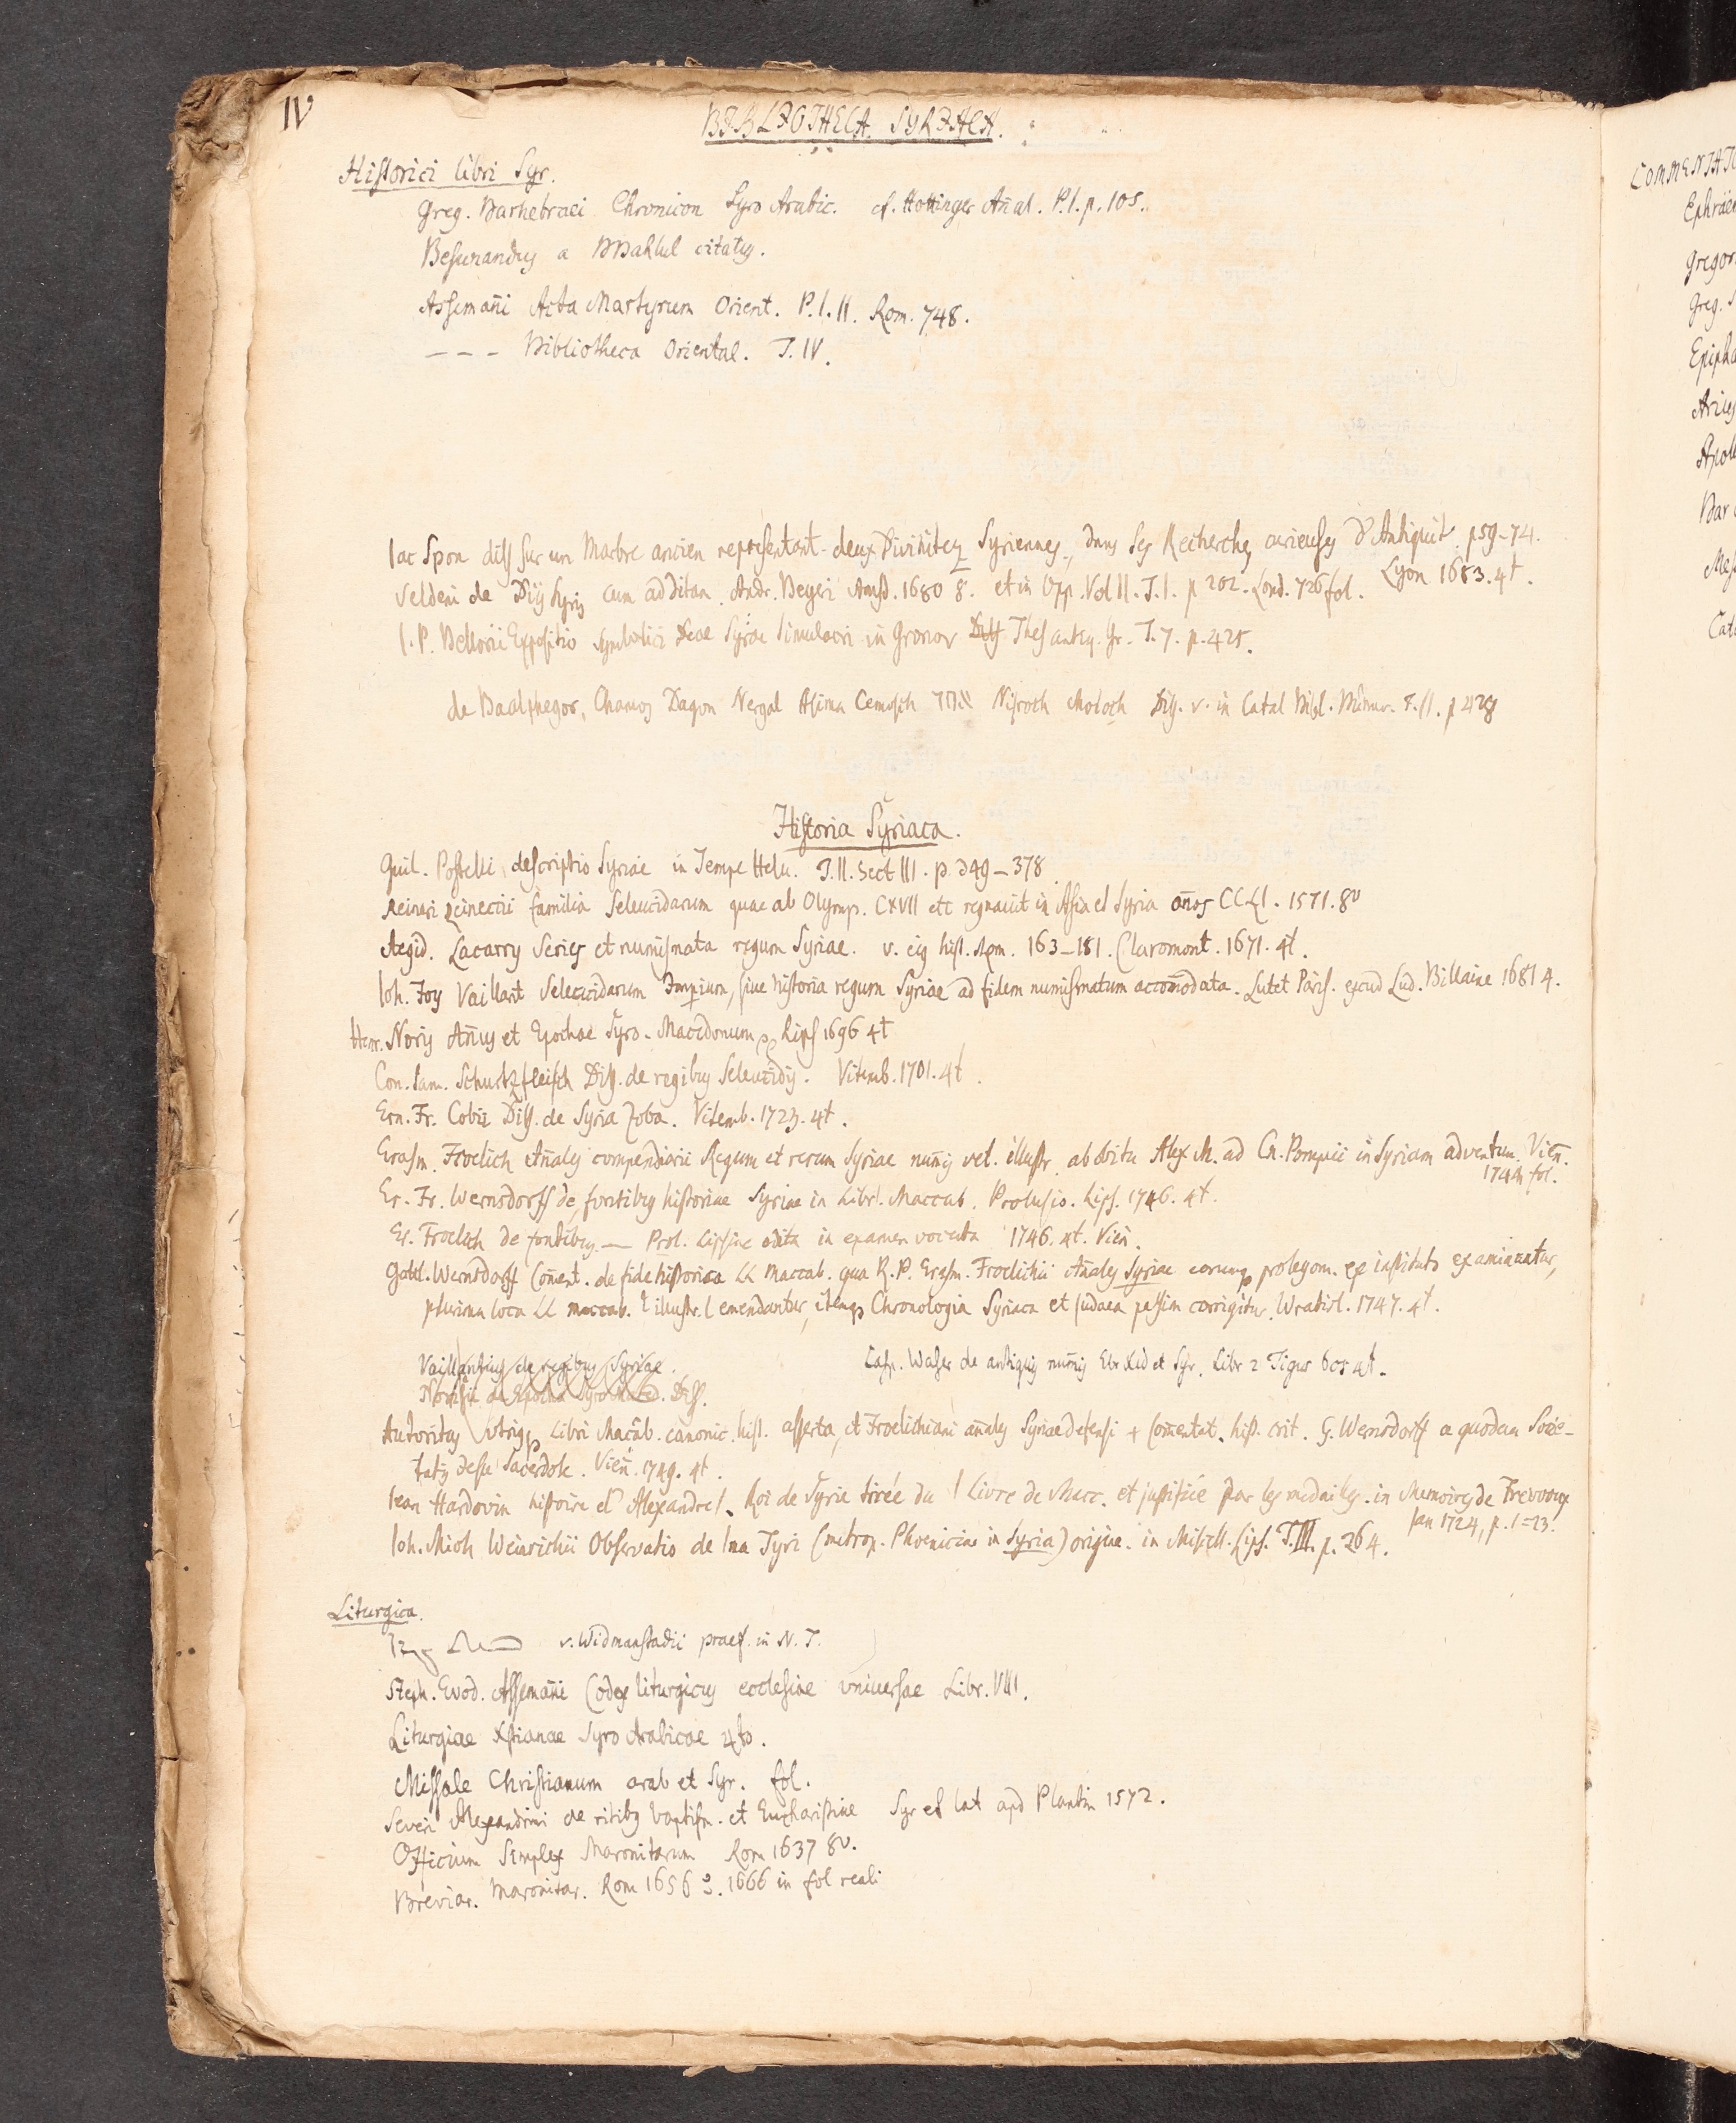 IV
BIBLIOTHECA SYRIACA.
Historici libri Syr.
Greg. Barhebraei Chronicon Syro Arabic. cf. Hottinger Anal. P.I. p. 105.
a Bahlul citatus.
Assemani Acta Martyrum Orient. P. I. II. Rom. 748.
— — — Bibliotheca Oriental. T. IV.
Iac Spon diss sur un Marbre ancien representant deux Divinitez Syriennes, dans ses Recherches curieuses d'Antiquit. p 59-74.
Lyon 1683. 4t.
Seldeni de Diis Syris cum additam. Andr. Beyeri Amst. 1680 8. et in Opp. Vol II. T. I. p 202. Lond. 726 fol.
I. P. Bellorii Expositio symbolici Deae Syriae simulacri in Gronov Thes antiq. Gr. T. 7. p. 425.
de Baalphegor, Chamos Dagon Nergal Asima Cemosch Nisroch Moloch Diss. v. in Catal Bibl. Bünav. T. II. p 428
Historia Syriaca.
Guil. Postelli descriptio Syriae in Tempe Helv. T. II. Sect III. p. 349-378
Reineri Reineccii familia Seleucidarum quae ab Olymp. CXVII etc regnauit in Asia et Syria anos CCLI. 1571. 8v
Aegid. Lacarry Series et numismata regum Syriae. v. eius hist. Rom. 163-181. Claromont. 1671. 4t.
Ioh. Foy Vaillant Seleucidarum Imperium, siue historia regum Syriae ad fidem numismatum accomodata. Lutet Paris. excud Lud. Billaine 1681 4.
Henr. Noris Annus et Epochae Syro-Macedonum Lips 1696 4t
Con. Sam. Schurtzfleisch Diss. de regibus Seleucidis. Vitemb. 1701. 4t.
Ern. Fr. Cobii Diss. de Syria Zoba. Vitemb. 1723. 4t.
Erasm. Froelich Annales compendiarii Regum et rerum Syriae numis vet. illustr. ab obitu Alex M. ad Cn. Pompeii in Syriam adventum. Vien.
1744 fol.
Er. Fr. Wernsdorff de fontibus historiae Syriae in Libr. Maccab. Prolusio. Lips. 1746. 4t.
Er. Froelich de fontibus — Prol. Lipsiae edita in examen vocata 1746. 4t. Vien.
Gottl. Wernsdorff Coment. de fide historica LL Maccab. qua R. P. Erasm. Froelichii Annales Syriae eorumq prolegom. ex instituto examinantur,
plurima loca LL maccab. illustr. emendantur, itemq Chronologia Syriaca et Iudaea passim corrigitur. Wratisl. 1747. 4t.
Vaillantius de regibus Syriae.
Casp. Waser de antiquis numis Ebr Chald et Syr. Libr 2 Tigur 605 4t.
Norisii de Epocha Syro Maced. Diss.
Autoritas utriusq Libri Macab. canonic. hist. asserta, et Froelichiani annales Syriae defensi + Comentat. hist. crit. G. Wernsdorff a quodam Socie-
tatis Jesu Sacerdote. Vien. 1749. 4t.
Iean Hardovin histoire d'Alexandre I. Roi de Syrie tirée du I Livre de Macc. et justifiée par les medailles. in Memoires de Trevoux
Ian 1724, p. 1-23.
Ioh. Mich Weinrichii Observatio de Tyri (metrop. Phoeniciae in Syria) origine. in Miscell. Lips. T. III. p. 264.
Liturgica.
v. Widmanstadii praef. in N. T.
Steph. Evod. Assemani Codex liturgicus ecclesiae vniuersae Libr. VIII.
Liturgiae Xstianae Syro Arabicae 4to.
Missale Christianum arab et Syr. fol.
Severi Alexandrini de ritibus baptism. et Eucharistiae Syr et lat apd Plantin 1572.
Officium Simplex Maronitarum Rom 1637 8v.
Breviar. Maronitar. Rom 1656 1666 in fol reali
COMMENTAT
Ephräe
Gregor
Greg.
Epipha
Arius
Apol
Bar